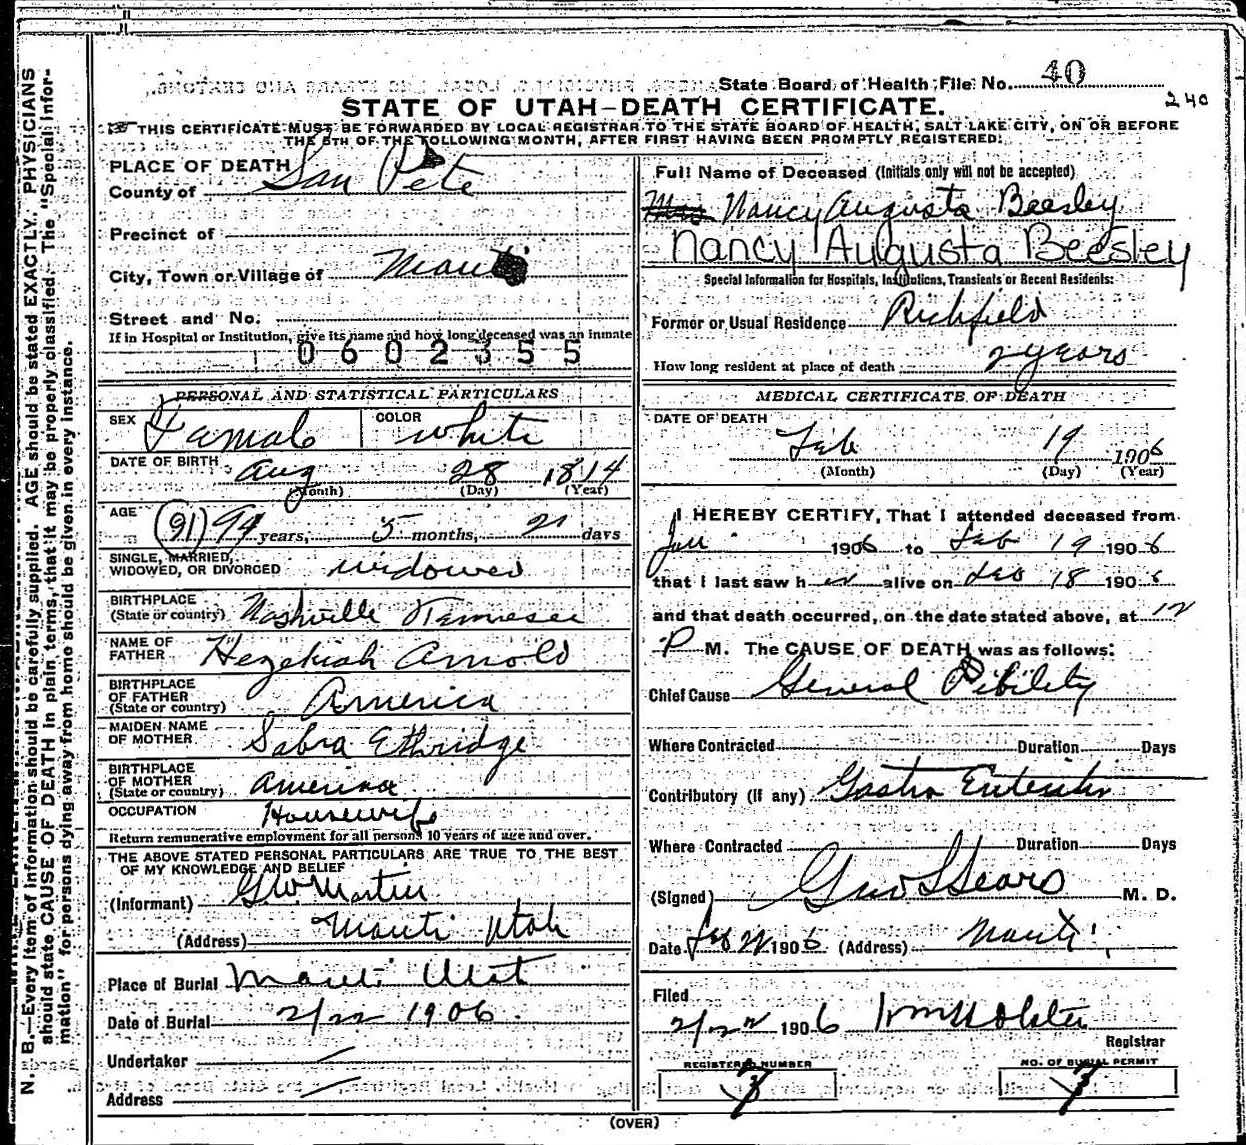 State Board of Health File No. 40
240
STATE OF UTAH—DEATH CERTIFICATE.
THIS CERTIFICATE MUST BE FORWARDED BY LOCAL REGISTRAR TO THE STATE BOARD OF HEALTH, SALT LAKE CITY, ON OR BEFORE
THE 5TH OF THE FOLLOWING MONTH, AFTER FIRST HAVING BEEN PROMPTLY REGISTERED.
N. B.—Every item of information should be carefully supplied. AGE should be stated EXACTLY. PHYSICIANS
should state CAUSE OF DEATH in plain terms, that it may be properly classified. The "Special Infor-
mation" for persons dying away from home should be given in every instance.
PLACE OF DEATH
County of San Pete
Precinct of
City, Town or Village of Manti
Street and No.
If in Hospital or Institution, give its name and how long deceased was an inmate
0602355
PERSONAL AND STATISTICAL PARTICULARS
SEX Famale COLOR white
DATE OF BIRTH Aug 28 1814
(Month) (Day) (Year)
AGE (91) 94 years, 5 months, 21 days
SINGLE, MARRIED,
WIDOWED, OR DIVORCED widowed
BIRTHPLACE
(State or country) Nashville Tennessee
NAME OF
FATHER Hezekiah Arnold
BIRTHPLACE
OF FATHER
(State or country) America
MAIDEN NAME
OF MOTHER Sabra Ethridge
BIRTHPLACE
OF MOTHER
(State or country) America
OCCUPATION Housewife
Return remunerative employment for all persons 10 years of age and over.
THE ABOVE STATED PERSONAL PARTICULARS ARE TRUE TO THE BEST
OF MY KNOWLEDGE AND BELIEF
(Informant) G W Martin
(Address) Manti Utah
Place of Burial Manti Utah
Date of Burial 2/22 1906.
Undertaker
Address
Full Name of Deceased (Initials only will not be accepted)
Mrs Nancy Augusta Beesley
Nancy Augusta Beesley
Special Information for Hospitals, Institutions, Transients or Recent Residents:
Former or Usual Residence Richfield
How long resident at place of death 2 years
MEDICAL CERTIFICATE OF DEATH
DATE OF DEATH
Feb 19 1906
(Month) (Day) (Year)
I HEREBY CERTIFY, That I attended deceased from
Jan 1906 to Feb 19 1906
that I last saw her alive on Feb 18 1906
and that death occurred, on the date stated above, at 12
P M. The CAUSE OF DEATH was as follows:
Chief Cause General Debility
Where Contracted Duration Days
Contributory (If any) Gastro Enteritis
Where Contracted Duration Days
(Signed) Geo L Sears M. D.
Date Feb 21 1906 (Address) Manti
Filed
2/22 1906
Registrar
REGISTERED NUMBER
7
NO. OF BURIAL PERMIT
7
(OVER)